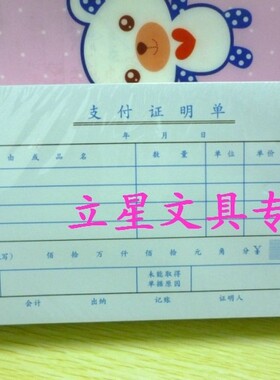 支付证明单
年 月 日
由 或 品 名 数 量 单 位 单 价
立星文具专
写) 佰 拾 万 仟 佰 拾 元 角 分 ¥
未能取得
单据原因
会计 出纳 记账 证明人